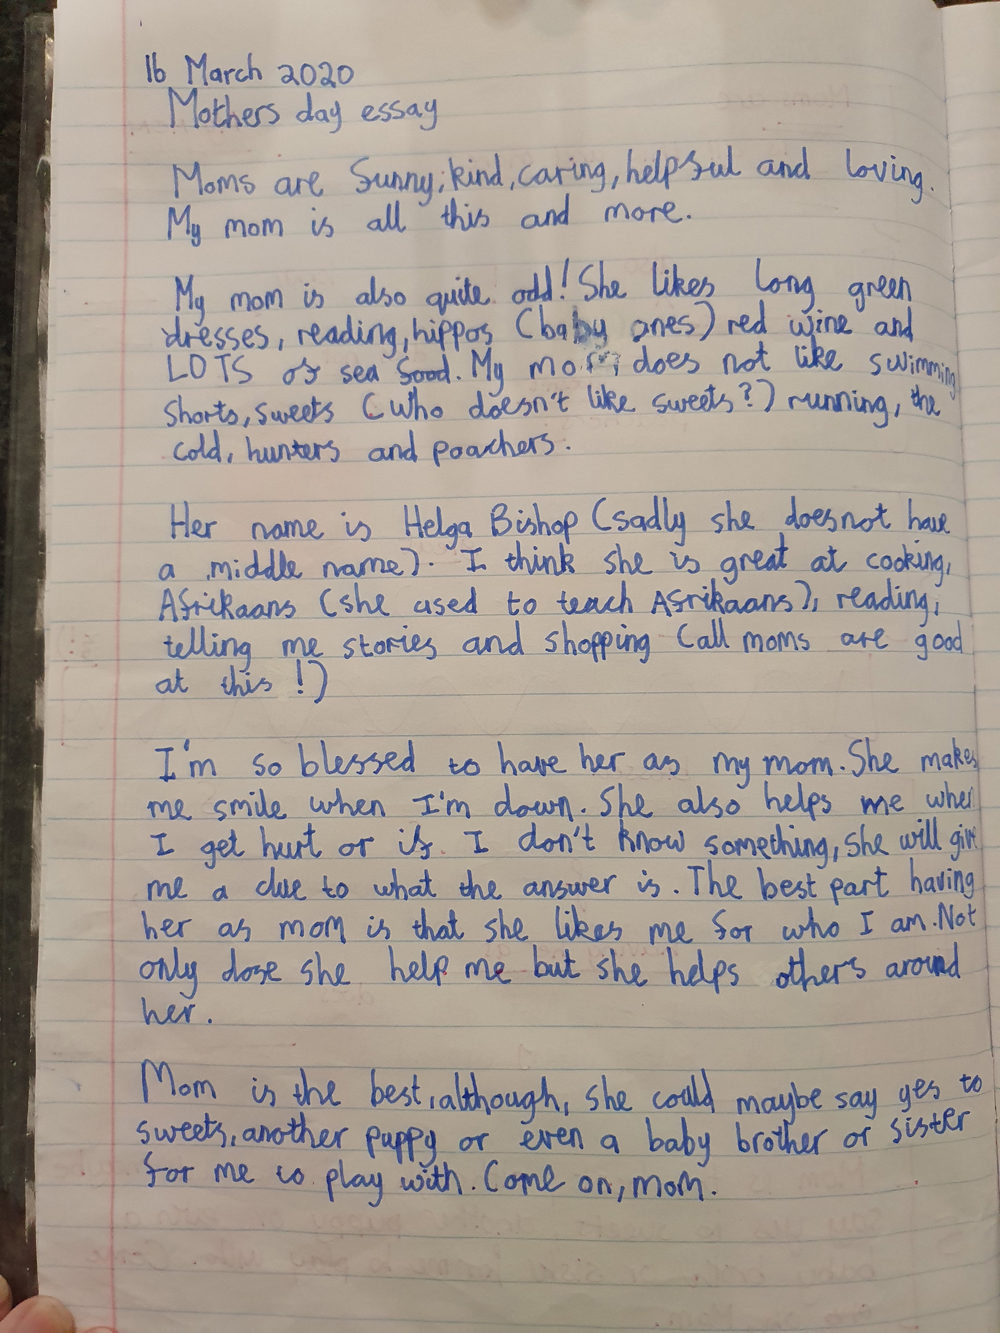 16 March 2020
Mothers day essay
Moms are funny, kind, caring, helpful and loving.
My mom is all this and more.
My mom is also quite odd! She likes long green
dresses, reading, hippos (baby ones) red wine and
LOTS of sea food. My mom does not like swimming
shorts, sweets (who doesn't like sweets?) running, the
cold, hunters and poachers.
Her name is Helga Bishop (sadly she does not have
a middle name). I think she is great at cooking,
Afrikaans (she used to teach Afrikaans), reading,
telling me stories and shopping (all moms are good
at this!)
I'm so blessed to have her as my mom. She makes
me smile when I'm down. She also helps me when
I get hurt or if I don't know something, she will give
me a clue to what the answer is. The best part having
her as mom is that she likes me for who I am. Not
only dose she help me but she helps others around
her.
Mom is the best, although, she could maybe say yes to
sweets, another puppy or even a baby brother or sister
for me to play with. Come on, mom.